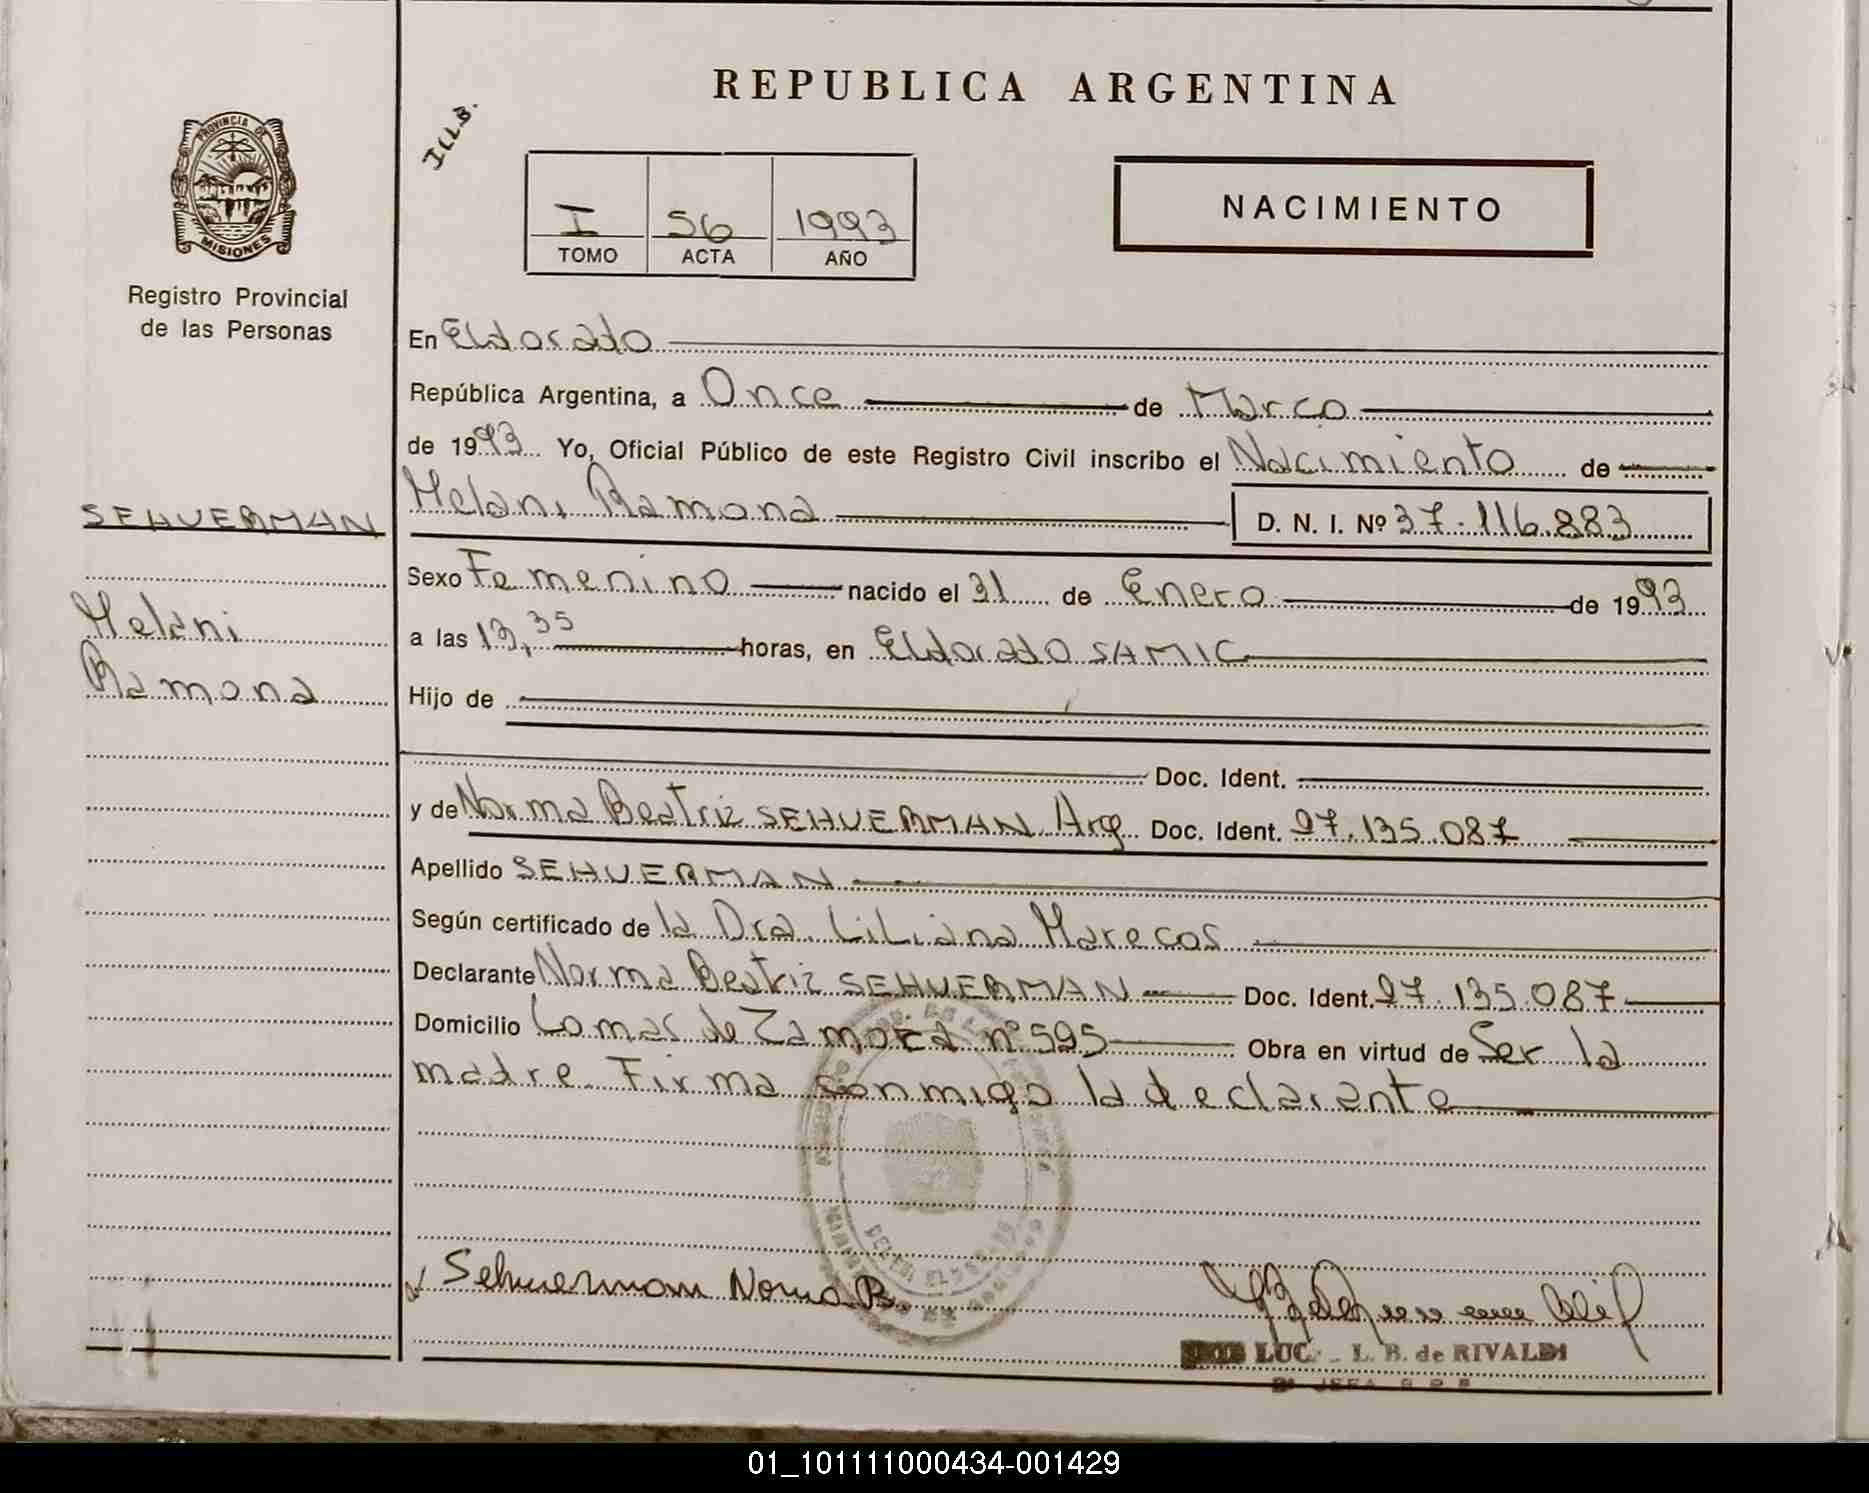 REPUBLICA ARGENTINA
I.L.L.B.
PROVINCIA DE
MISIONES
Registro Provincial
de las Personas
I 56 1993
TOMO ACTA AÑO
NACIMIENTO
En Eldorado
República Argentina, a Once de Marzo
de 1993 Yo, Oficial Público de este Registro Civil inscribo el Nacimiento de
SEHUERMAN
Melani Ramona D. N. I. Nº 37.116.883
Sexo Femenino nacido el 31 de Enero de 1993
Melani
a las 13,35 horas, en Eldorado SAMIC
Ramona
Hijo de
Doc. Ident.
y de Norma Beatriz SEHUERMAN Arg. Doc. Ident. 27.135.087
Apellido SEHUERMAN
Según certificado de la Dra. Liliana Marecos
Declarante Norma Beatriz SEHUERMAN Doc. Ident. 27.135.087
Domicilio Lomas de Zamora nº 595 Obra en virtud de Ser la
madre. Firma conmigo la declarante
Sehuerman Norma B.
L. B. de RIVALDI
01_101111000434-001429